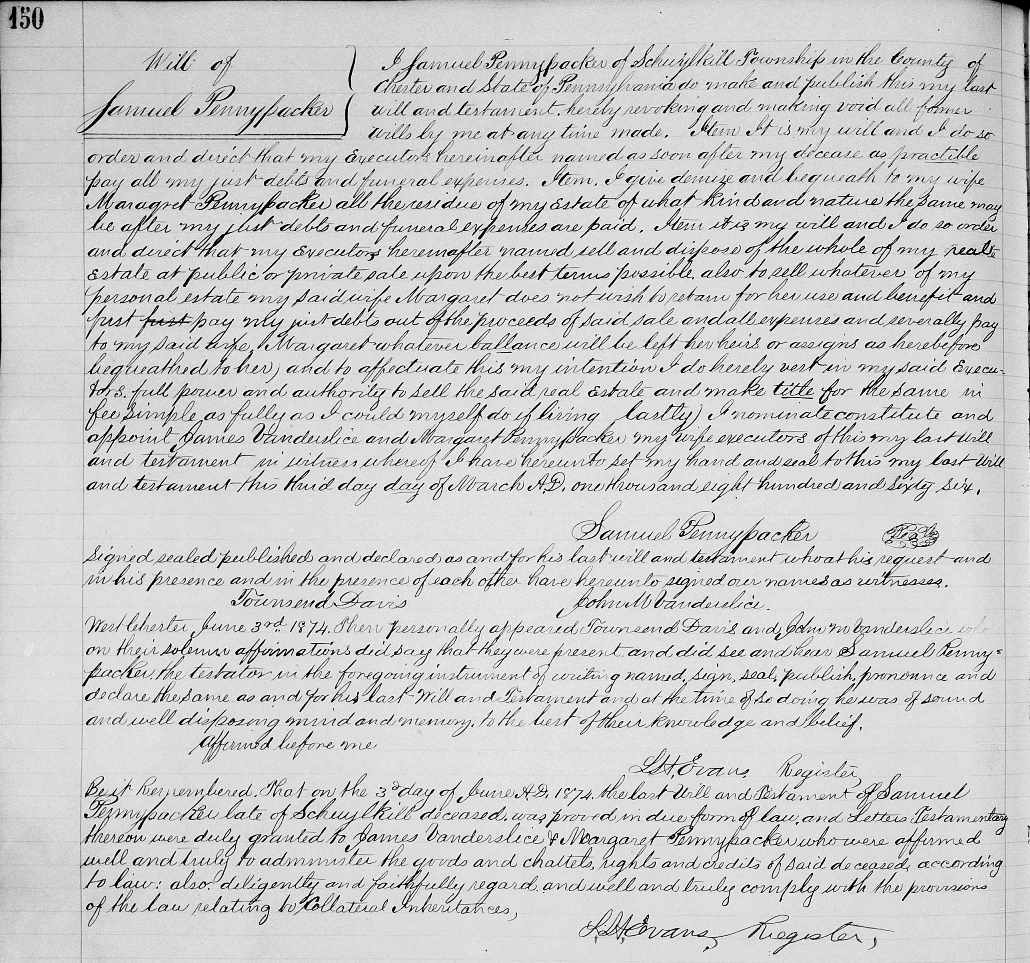 150
Will of
Samuel Pennypacker
I Samuel Pennypacker of Schuylkill Township in the County of
Chester and State of Pennsylvania do make and publish this my last
will and testament. hereby revoking and making void all former
wills by me at any time made. Item It is my will and I do so
order and direct that my Executors hereinafter named as soon after my decease as practible
pay all my just debts and funeral expenses. Item. I give demise and bequeath to my wife
Maragret Pennypacker all the residue of my Estate of what kind and nature the same may
be after my just debts and funeral expenses are paid. Item it is my will and I do so order
and direct that my Executors hereinafter named sell and dispose of the whole of my reals
Estate at public or private sale upon the best terms possible also to sell whatever of my
personal estate my said wife Margaret does not wish to retain for her use and benefit and
first first pay my just debts out of the proceeds of said sale and all expenses and severally pay
to my said wife, Margaret whatever ballance will be left her heirs or assigns as herebefore
bequeathed to her, and to affectuate this my intention I do hereby vest in my said Execu-
tors. full power and authority to sell the said real Estate and make title for the same in
fee simple as fully as I could myself do if living lastly) I nominate constitute and
appoint James Vanderslice and Margaret Pennypacker my wife executors of this my last will
and testament in witness whereof I have hereunto set my hand and seal to this my last Will
and testament this thrid day day of March A.D. one thousand eight hundred and sixty six.
Samuel Pennypacker
Signed sealed published and declared as and for his last will and testament who at his request and
in his presence and in the presence of each other have hereunto signed our names as witnesses.
Townsend Davis John M Vanderslice.
West Chester June 3rd. 1874. Then personally appeared Townsend Davis and John M Vanderslice who
on their solemn affirmations did say that they were present and did see and hear Samuel Penny=
packer, the testator in the foregoing instrument of writing named, sign, seal, publish, pronounce and
declare the same as and for his last Will and Testament and at the time of so doing he was of sound
and well disposing mind and memory. to the best of their knowledge and belief.
Affirmed before me
Evans Register
Be it Remembered. That on the 3d day of June A.D. 1874. the last Will and Testament of Samuel
Pennypacker late of Schuylkill deceased, was proved in due form of law, and Letters Testamentary
thereon were duly granted to James Vanderslice & Margaret Pennypacker who were affirmed
well and truly to administer the goods and chattels, rights and credits of said deceased, according
to law: also. diligently and faithfully regard, and well and truly comply with the provisions
of the law relating to Collateral Inheritances,
Evans, Register,